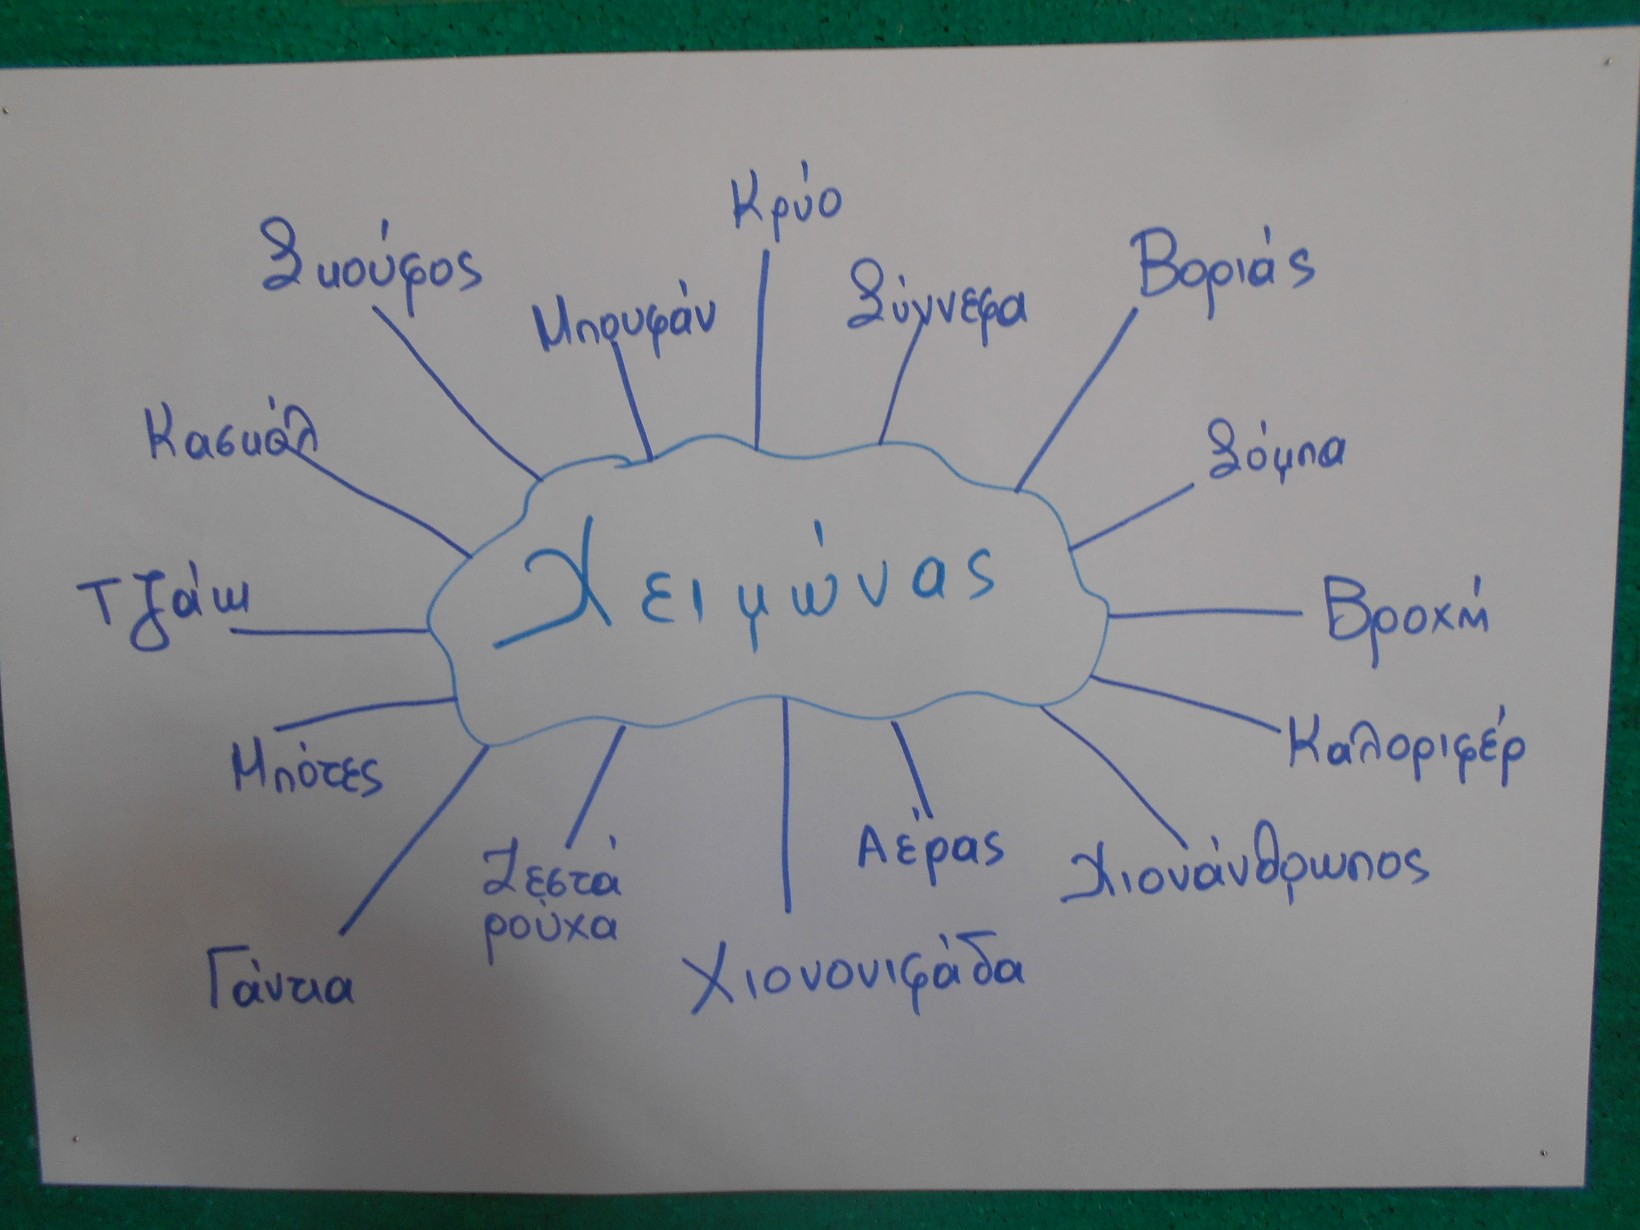 Κρύο
Σκούφος
Μπουφάν
Σύννεφα
Βοριάς
Κασκόλ
Σόμπα
Χειμώνας
Τζάκι
Βροχή
Μπότες
Καλοριφέρ
Ζεστά
ρούχα
Αέρας
Χιονάνθρωπος
Γάντια
Χιονονιφάδα